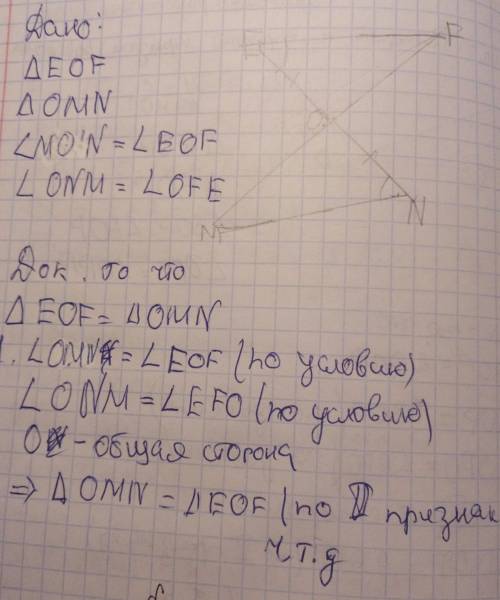 Дано:
E F
△EOF
△OMN
∠MON = ∠EOF
O
∠ONM = ∠OFE
M N
Док. то что
△EOF = △OMN
1. ∠OMN = ∠EOF (по условию)
∠ONM = ∠EFO (по условию)
- общая сторона
⇒ △OMN = △EOF (по II признак
ч.т.д